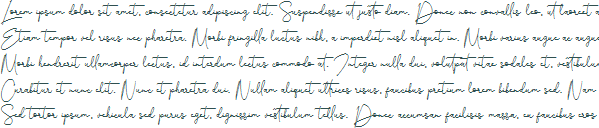 Lorem ipsum dolor sit amet, consectetur adipiscing elit. Suspendisse ut justo diam. Donec non convallis leo, ut laoreet a
Etiam tempor vel risus nec pharetra. Morbi fringilla luctus nibh, a imperdiet nisl aliquet in. Morbi varius augue ac augue
Morbi hendrerit ullamcorper lectus, id interdum lectus commodo at. Integer nulla dui, volutpat vitae sodales et, vestibulum
Curabitur et nunc elit. Nunc et pharetra dui. Nullam aliquet ultrices risus, faucibus pretium lorem bibendum sed. Nam
Sed tortor ipsum, vehicula sed purus eget, dignissim vestibulum tellus. Donec accumsan facilisis massa, eu faucibus eros